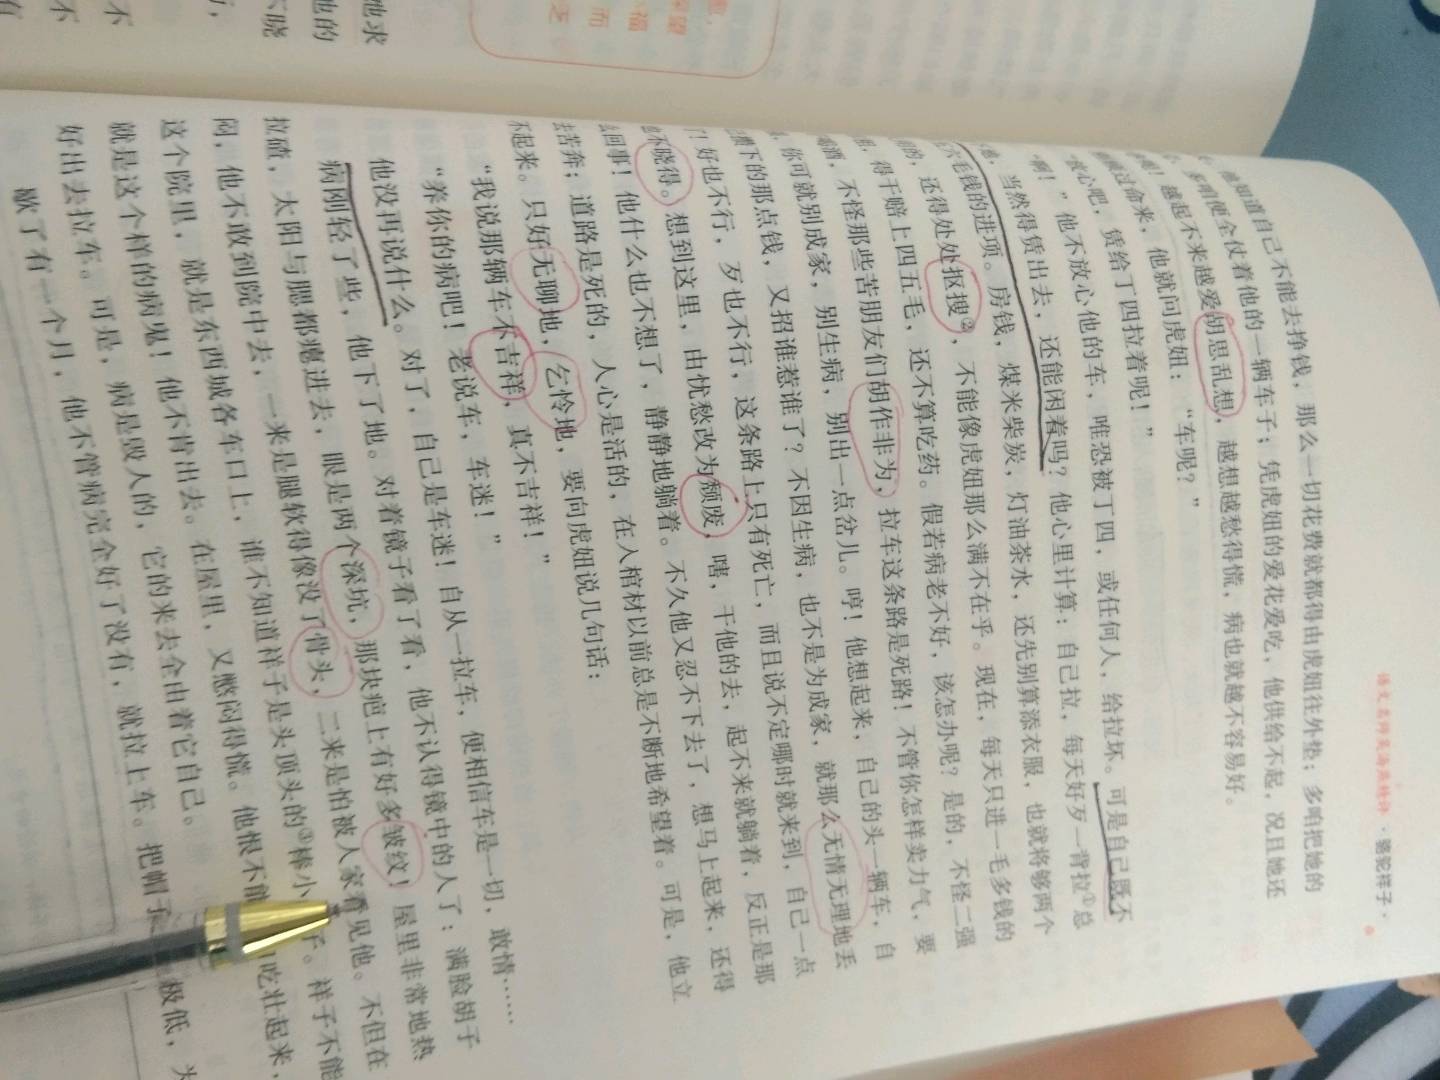 语文名师男篇点评·骆驼祥子·
知道自己不能去挣钱，那么一切花费就都得由虎妞往外垫；多咱把她的
便全仗着他的一辆车子；凭虎妞的爱花爱吃，他供给不起，况且她还
越起不来越爱胡思乱想，越想越愁得慌，病也就越不容易好。
他就问虎妞：“车呢？”
放心吧，赁给丁四拉着呢！”
“啊！”他不放心他的车，唯恐被丁四，或任何人，给拉坏。可是自己既不
当然得赁出去，还能闲着吗？他心里计算：自己拉，每天好歹一背拉①总
毛钱的进项。房钱，煤米柴炭，灯油茶水，还先别算添衣服，也就将够两个
还得处处抠搜②，不能像虎妞那么满不在乎。现在，每天只进一毛多钱的
得干赔上四五毛，还不算吃药。假若病老不好，该怎办呢？是的，不怪二强
不怪那些苦朋友们胡作非为，拉车这条路是死路！不管你怎样卖力气，要
你可就别成家，别生病，别出一点岔儿。哼！他想起来，自己的头一辆车，自
下的那点钱，又招谁惹谁了？不因生病，也不是为成家，就那么无情无理地丢
了！好也不行，歹也不行，这条路上只有死亡，而且说不定哪时就来到，自己一点
也不晓得。想到这里，由忧愁改为颓废，嗐，干他的去，起不来就躺着，反正是那
么回事！他什么也不想了，静静地躺着。不久他又忍不下去了，想马上起来，还得
去苦奔；道路是死的，人心是活的，在入棺材以前总是不断地希望着。可是，他立
不起来。只好无聊地，乞怜地，要向虎妞说几句话：
“我说那辆车不吉祥，真不吉祥！”
“养你的病吧！老说车，车迷！”
他没再说什么。对了，自己是车迷！自从一拉车，便相信车是一切，敢情……
病刚轻了些，他下了地。对着镜子看了看，他不认得镜中的人了：满脸胡子
拉碴，太阳与腮都瘪进去，眼是两个深坑，那块疤上有好多皱纹！屋里非常地热
闷，他不敢到院中去，一来是腿软得像没了骨头，二来是怕被人家看见他。不但在
这个院里，就是东西城各车口上，谁不知道祥子是头顶头的③棒小子。祥子不能
就是这个样的病鬼！他不肯出去。在屋里，又憋闷得慌。他恨不能 吃壮起来，
好出去拉车。可是，病是毁人的，它的来去全由着它自己。
歇了有一个月，他不管病完全好了没有，就拉上车。把帽子 极低，为